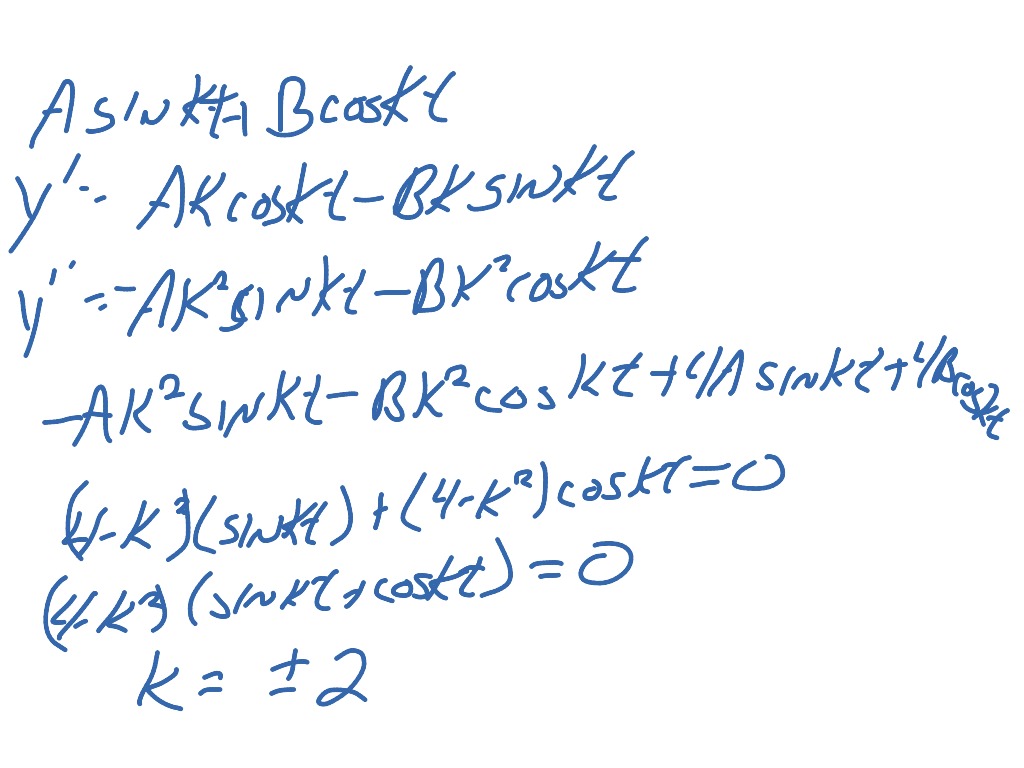 A sin kt + B cos kt
y' = AK cos kt - BK sin kt
y'' = -AK² sin kt - BK² cos kt
-AK² sin kt - BK² cos kt + 4A sin kt + 4B cos kt
(4-K²)(sin kt) + (4-K²) cos kt = 0
(4-K²)(sin kt + cos kt) = 0
K = ±2